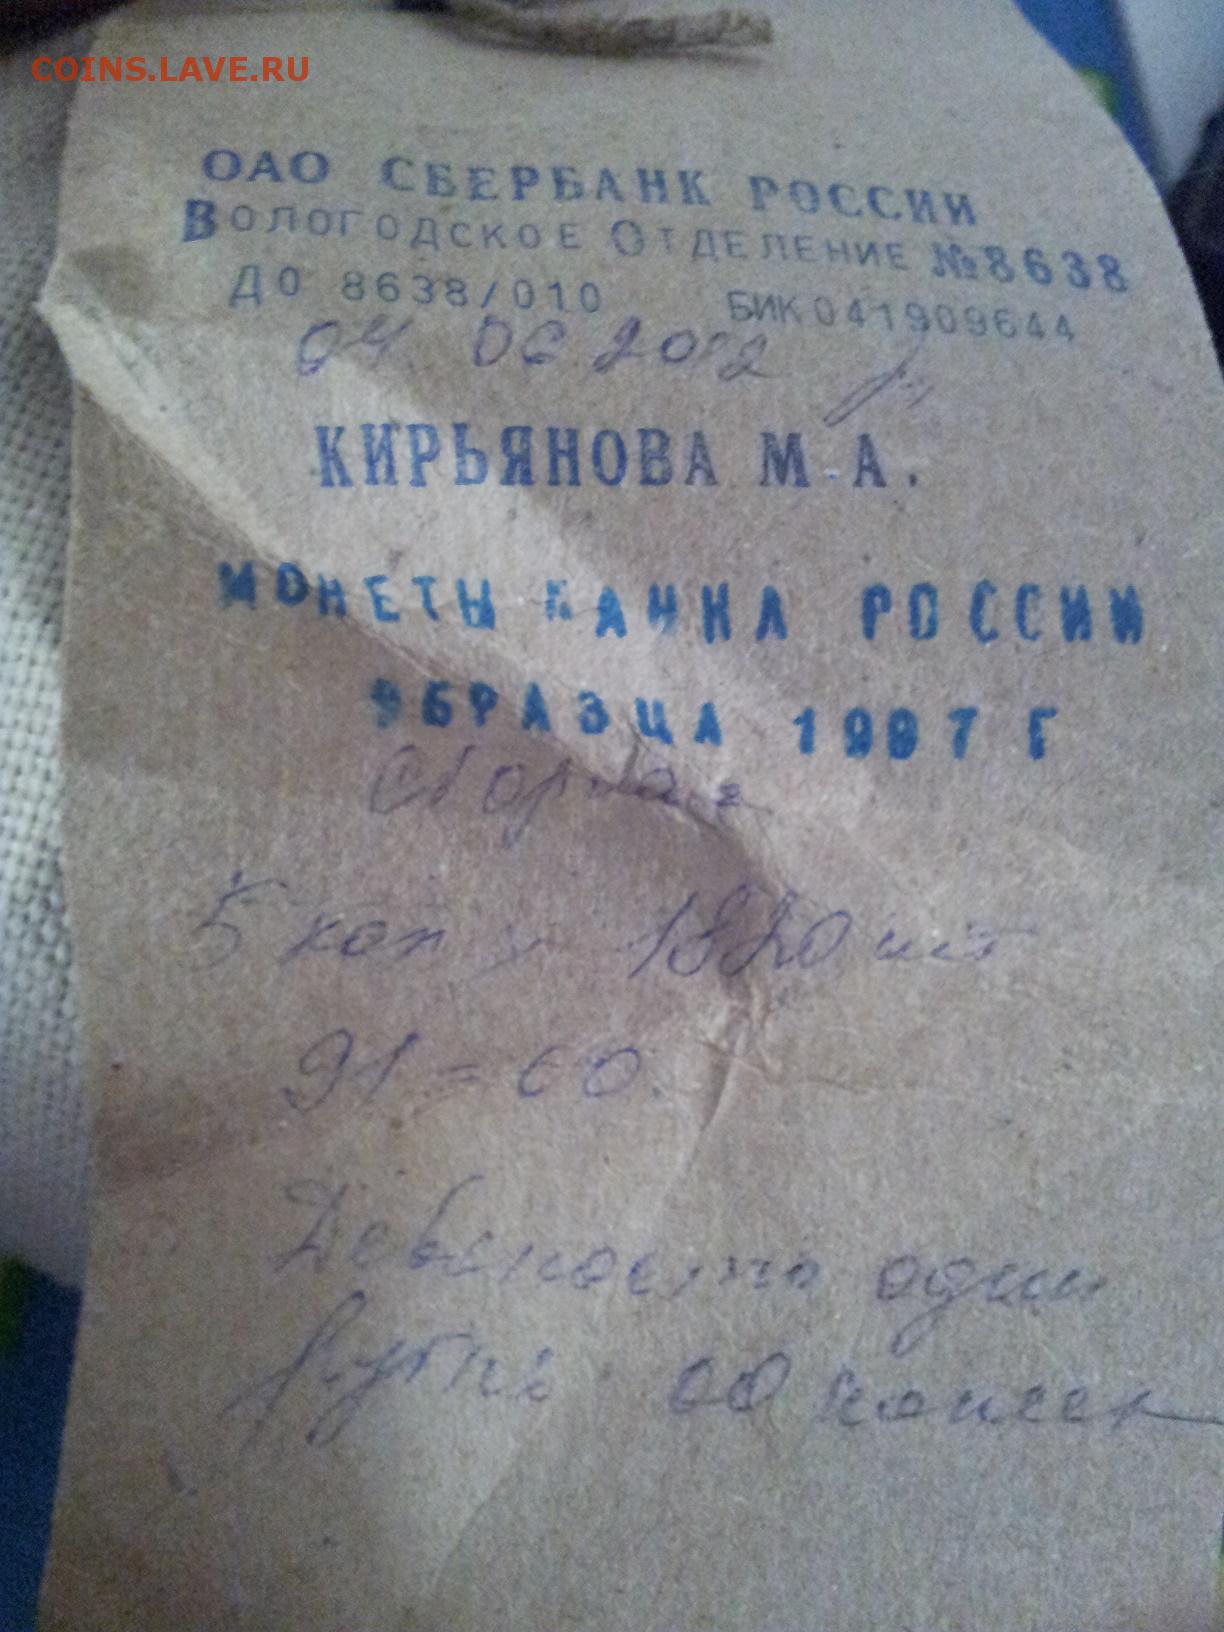 COINS.LAVE.RU
ОАО СБЕРБАНК РОССИИ
ВОЛОГОДСКОЕ ОТДЕЛЕНИЕ №8638
ДО 8638/010 БИК 041909644
04. 06 2012
КИРЬЯНОВА М.А.
МОНЕТЫ БАНКА РОССИИ
ОБРАЗЦА 1997 Г
сборная
5 коп х 1820 шт
91=00.
Девяносто один
рубль 00 копеек